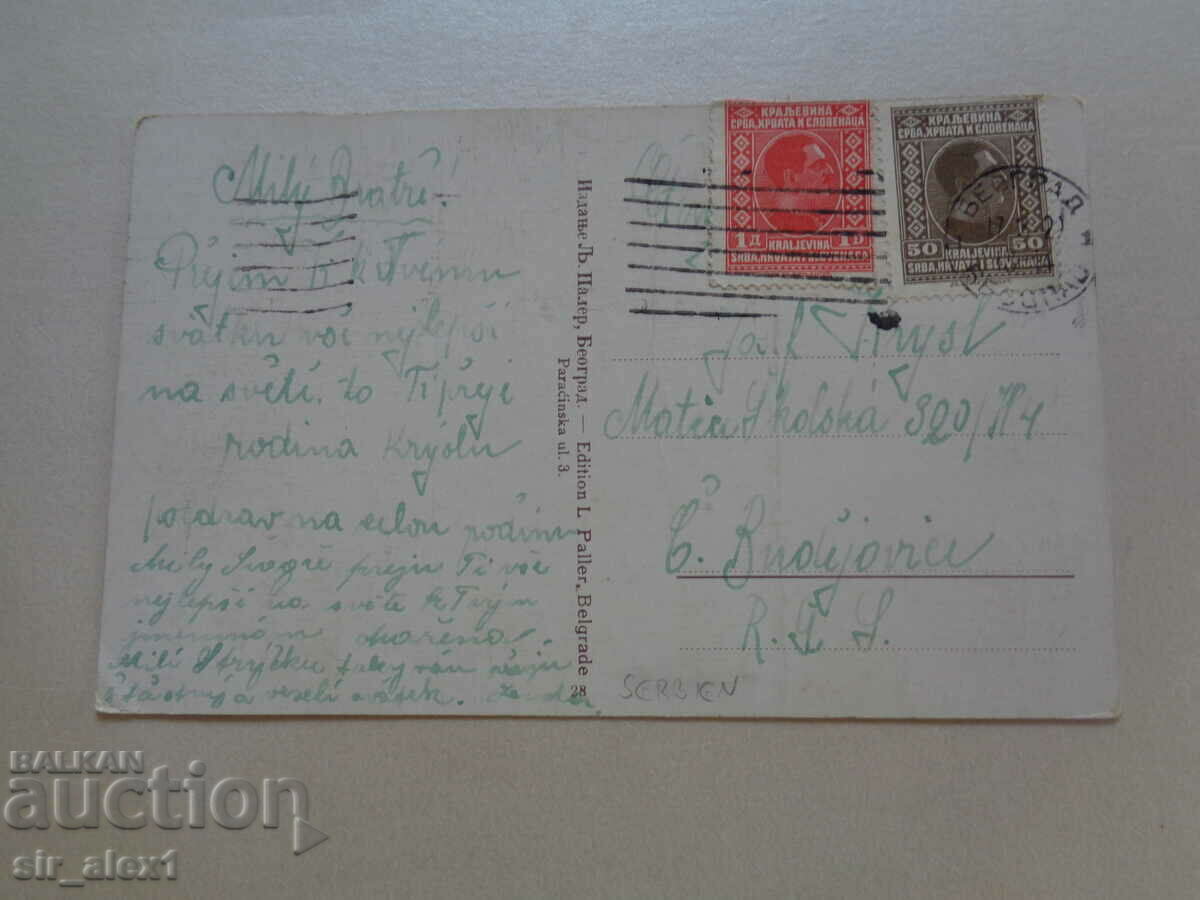 Milý Bratře!
Přejem Ti k Tvému
svátku vče nejlepší
na světě. to Ti přeje
rodina Krýslu
pozdrav na celou rodinu
Milý Švagře přeju Ti vče
nejlepší na světe k Tvým
jmeninám Mařena.
Milí Strýčku taky vám přeju
štastný a veselí svátek.
Издање Љ. Палер, Београд. — Edition L. Paller, Belgrade
Paraćinska ul. 3.
28
КРАЉЕВИНА
СРБА, ХРВАТА И СЛОВЕНАЦА
1Д 1D
KRALJEVINA
SRBA, HRVATA I SLOVENACA
КРАЉЕВИНА
СРБА, ХРВАТА И СЛОВЕНАЦА
50 50
KRALJEVINA
SRBA, HRVATA I SLOVENACA
БЕОГРАД
BEOGRAD
Krysl
Matice Školská 320/
Č. Budějovice
R. Č. S.
SERBIEN
BALKAN
auction
sir_alex1